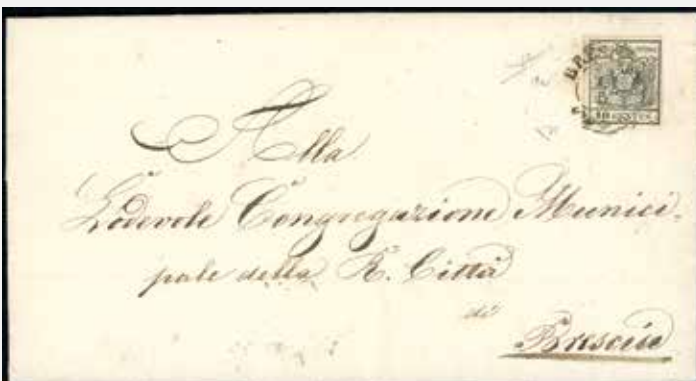 BRES
10 CENTES.
Alla
Lodevole Congregazione Munici-
pale della R. Città
di
Brescia